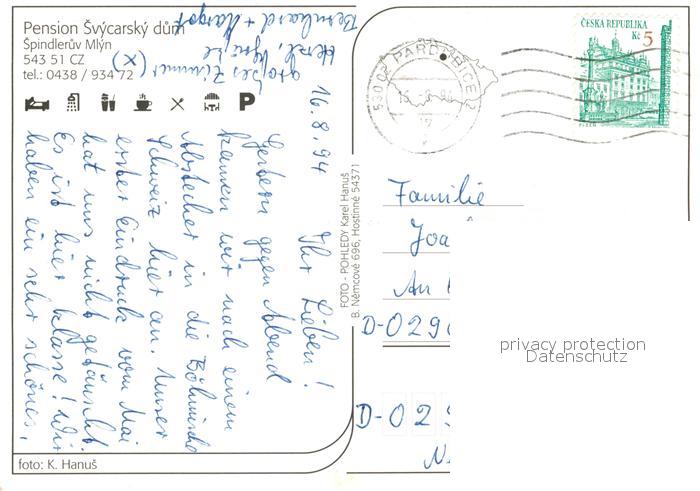 Pension Švýcarský dům
Špindlerův Mlýn
543 51 CZ
tel.: 0438 / 934 72
16.8.94
Ihr Lieben!
Gestern gegen Abend
kamen wir nach einem
Abstecher in die Böhmische
Schweiz hier an. Unser
erster Eindruck vom Mai
hat uns nicht getäuscht.
Es ist hier klasse! Wir
haben ein sehr schönes,
großes Zimmer (x)
Herzl. Grüße
Bernhard + Margot
foto: K. Hanuš
FOTO - POHLEDY Karel Hanuš
B. Němcové 696, Hostinné 54371
530 02 PARDUBICE 2
ČESKÁ REPUBLIKA
Kč 5
PLZEŇ
Familie
Joa
An
D-029
D-029
privacy protection
Datenschutz